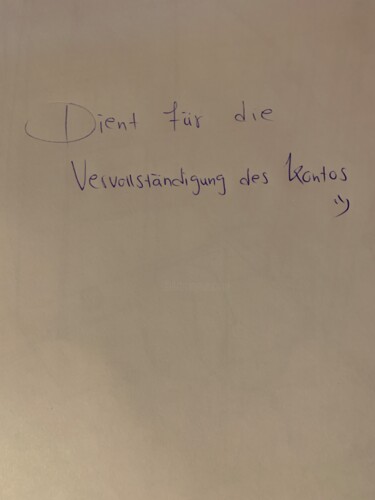 Dient für die
Vervollständigung des Kontos
:)